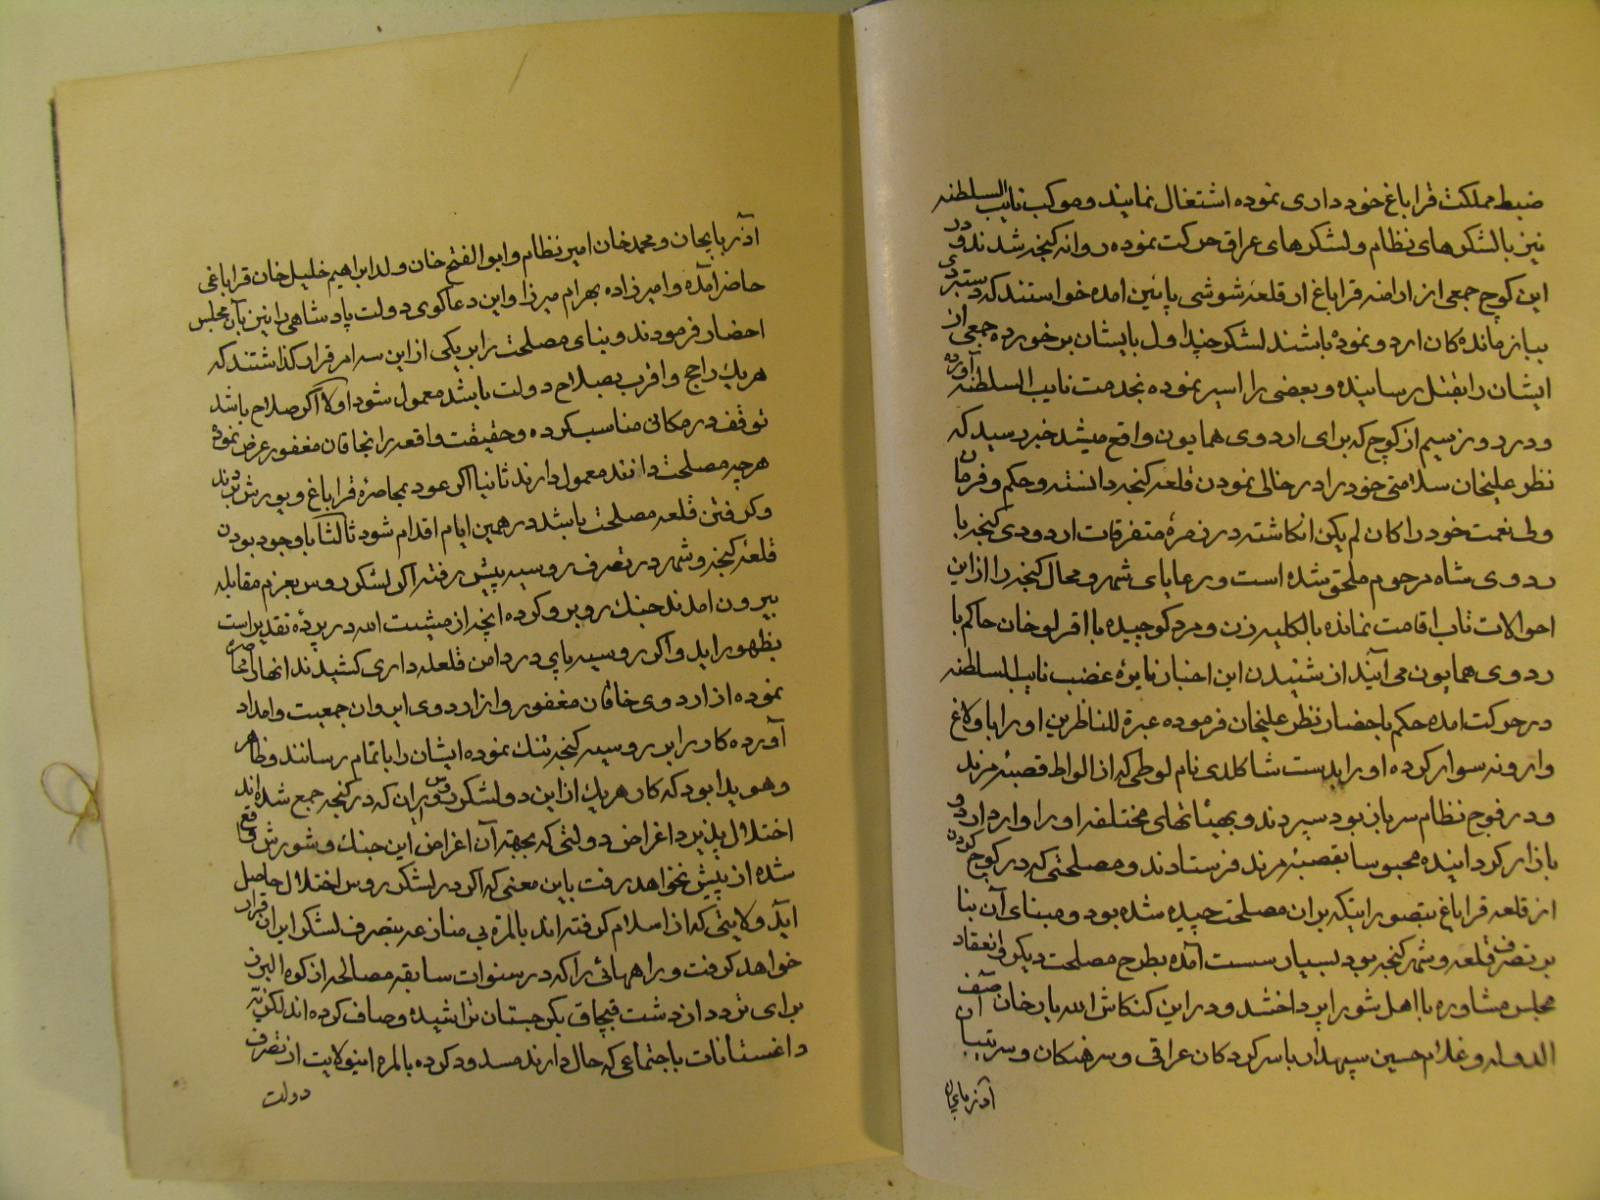 ضبط مملکت قراباغ خود داری نموده اشتغال نمایند و موکب نایب السلطنه
نیز با لشکرهای نظام و لشکرهای عراق حرکت نموده روانه کنجه شدند و در
این کوچ جمعی از ارامنه قراباغ از قلعۀ شوشی پائین امده خواستند که دستبردی
ببازماندهکان اردو نموده باشند لشکر چنداول بایشان برخورده جمعی از
ایشان را بقتل رسانیده و بعضی را اسیر نموده بخدمت نایب السلطنه آورده
و در روز سیم از کوچ که برای اردوی همایون واقع میشد خبر رسید که
نظر علیخان سلامتی خود را در خالی نمودن قلعه کنجه دانسته و حکم و فرمان
ولی نعمت خود را کان لم یکن انکاشته در زمرۀ متفرقات اردوی کنجه با
ردوی شاه مرحوم ملحق شده است و رعایای شمر و محال کنجه را از این
احوالات تاب اقامت نمانده بالکلیه زن و مرد کوچیده با اقرلو خان حاکم با
ردوی همایون می آیند از شنیدن این اخبار نایرۀ غضب نایب السلطنه
در حرکت امده حکم باحضار نظر علیخان فرموده عبرة للناظرین او را با ولاغ
وارونه سوار کرده او را بدست شاکلدی نام لوطی که از الواط قصبۀ مرند
و در فوج نظام سرباز بود سپردند و بهیئاتهای مختلفه او را وارد اردو
بازار کردانیده محبوسا بقصبۀ مرند فرستادند و مصلحتی که در کوچ کردن
از قلعه قراباغ بتصور اینکه بران مصلحت چیده شده بود و مبنای آن بنا
بر تصرف قلعه و شهر کنجه بود بسیار سست آمده بطرح مصلحت دیکر و انعقاد
مجلس مشاوره با اهل شورا پرداخشد و در این کنکاش الله یار خان آصف
الدوله و غلام حسین سپهدار با سرکردکان عراقی و سرهنکان و سرتیپان
آذربایجان
آذربایجان و محمد خان امیر نظام و ابو الفتح خان ولد ابراهیم خلیل خان قراباغی
حاضر آمده و امیرزاده بهرام میرزا و این دعاکوی دولت پادشاهی را نیز بآن مجلس
احضار فرمودند و بنای مصلحت را بر یکی از این سه امر قرار کذاشتند که
هریک راجح و اقرب بصلاح دولت باشد معمول شود اولا اگر صلاح باشد
توقف در مکانی مناسب کرده و حقیقت واقعه را بخاقان مغفور عرض نموده
هر چه مصلحت دانند معمول دارند ثانیا اکر عود بمحاصرۀ قراباغ و یورش بردن
و کرفتن قلعه مصلحت باشد در همین ایام اقدام شود ثالثا با وجود بودن
قلعۀ کنجه و شمر در تصرف روسیه پیش رفته اکر لشکر روس بعزم مقابله
بیرون امدند جنک روبرو کرده انچه از مشیت الله در پردۀ تقدیر است
بظهور اید و اکر روسیه پای در دامن قلعه داری کشیدند انها را محاصره
نموده از اردوی خاقان مغفور و از اردوی ایروان جمعیت و امداد
آورده کار را بر روسیه کنجه تنک نموده ایشان را باتمام رسانند و ظاهر
و هویدا بود که کار هریک از این دو لشکر روس و ایران که در کنجه جمع شده اند
اختلال پذیرد اغراض دولتی که بجهته آن اغراض این جنک و شورش واقع
شده از پیش نخواهد رفت باین معنی که اکر در لشکر روس اختلال حاصل
اید ولایتی که از اسلام کرفته اند بالمره بی منازعه بتصرف لشکر ایران قرار
خواهد کرفت و راههائی را که در سنوات سابقه مصالحه از کوه البرز
برای تردد از دشت قبچاق بکرجستان تراشیده و صاف کرده اند لکزیۀ
داغستانات باجتماعی که حال دارند مسدود کرده بالمره اینولایت از تصرف
دولت